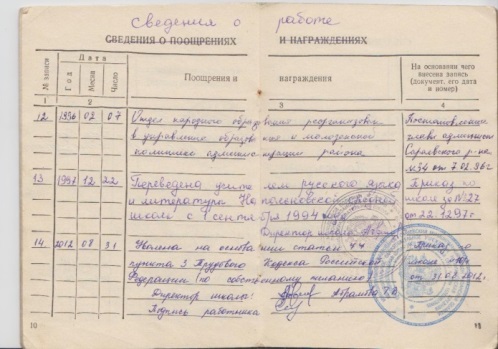 Сведения о работе
СВЕДЕНИЯ О ПООЩРЕНИЯХ И НАГРАЖДЕНИЯХ
№ записи
Дата
Год
Месяц
Число
Поощрения и награждения
На основании чего внесена запись (документ, его дата и номер)
1 2 3 4
12. 1996 02 07 Отдел народного образования реорганизован Постановление
в управление образования и молодежной главы
политики администрации района Сараевского р-на
№34 от 7.02.96г
13. 1997 12 22 Переведена учителем русского языка Приказ по
и литературы школе №27
школы с 1 сентября 1994 года от 22.12.97г.
Директор школы
14. 2012 08 31 Уволена на основании статьи 77
пункта 3 Трудового Кодекса Российской
Федерации (по собственному желанию) от 31.08.2012г.
Директор школы: Абрамова
Подпись работника
10